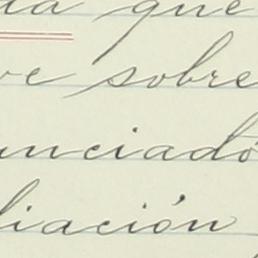 ua que
ve sobre
unciado
liación